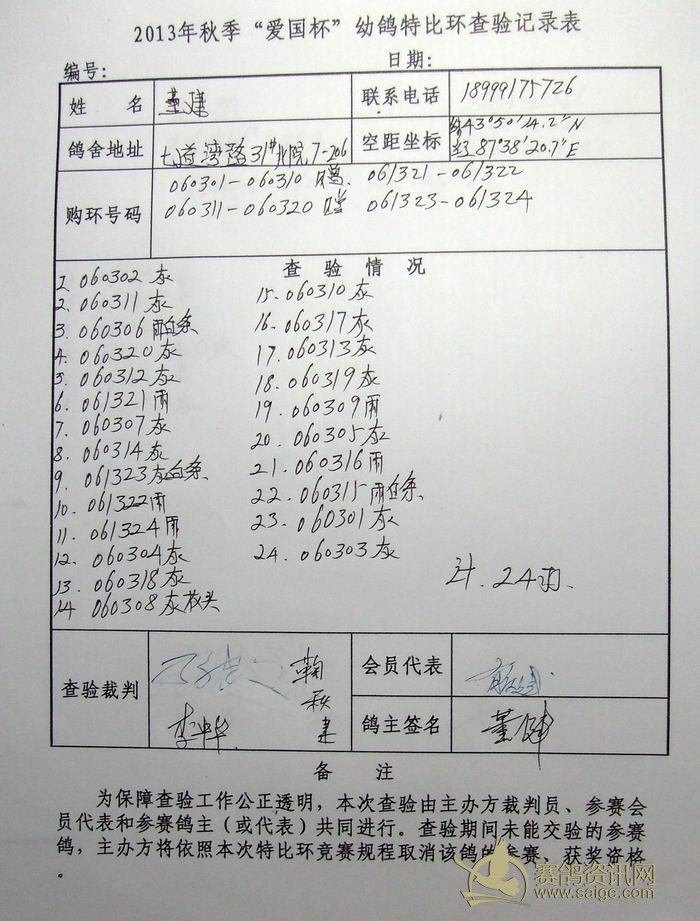 2013年秋季“爱国杯”幼鸽特比环查验记录表
编号: 日期:
姓 名 董建 联系电话 18999175726
鸽舍地址 七道湾路31#北院7-206 空距坐标 43°50′14.2″N
经87°38′20.7″E
购环号码 060301-060310 061321-061322
060311-060320 061323-061324
查 验 情 况
1. 060302灰 15. 060310灰
2. 060311灰 16. 060317灰
3. 060306雨白条 17. 060313灰
4. 060320灰 18. 060319灰
5. 060312灰 19. 060309雨
6. 061321雨 20. 060305灰
7. 060307灰 21. 060316雨
8. 060314灰 22. 060315雨白条
9. 061323灰白条 23. 060301灰
10. 061322雨 24. 060303灰
11. 061324雨
12. 060304灰
13. 060318灰 计. 24羽.
14 060308灰
查验裁判 鞠秋建 会员代表
李 鸽主签名 董健
备 注
为保障查验工作公正透明，本次查验由主办方裁判员、参赛会
员代表和参赛鸽主（或代表）共同进行。查验期间未能交验的参赛
鸽，主办方将依照本次特比环竞赛规程取消该鸽的参赛、获奖资格
。
赛鸽资讯网
www.saigc.com